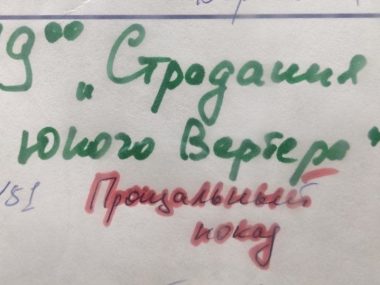 9⁰⁰ „Страдания
юного Вертера"
/51 Прощальный
показ